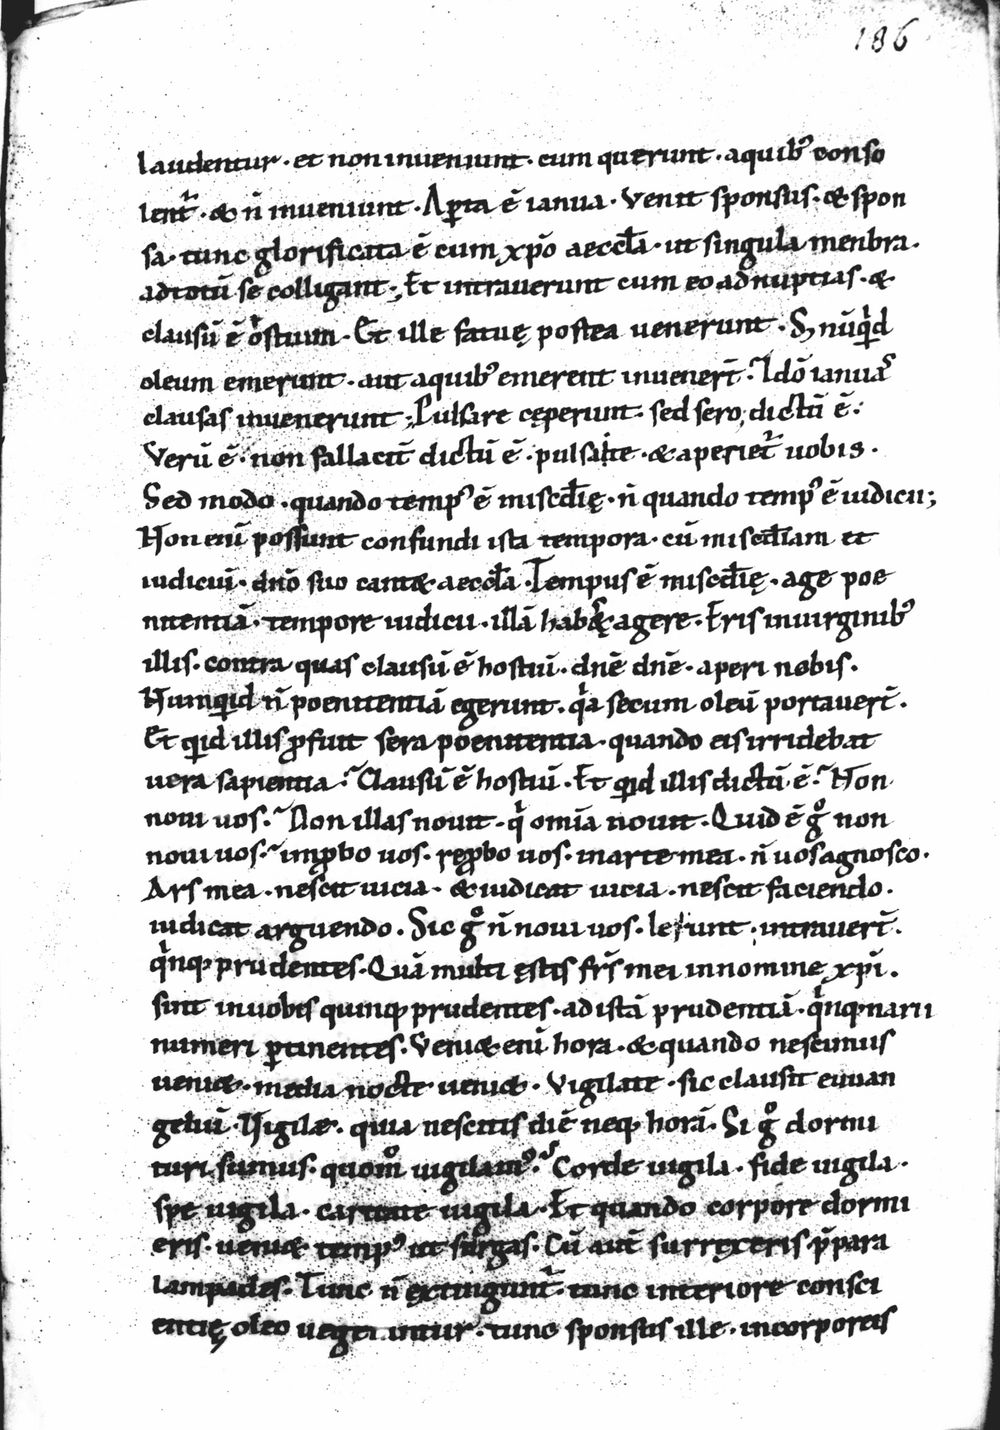 186
laudentur · et non inveniunt · cum querunt · aquib᷒ conso
lent᷑ · & n̄ inveniunt · Aꝑta ē ianua · Venit sponsus · & spon
sa · tunc glorificata ē cum xp̄o aeccl̄a · ut singula menbra ·
adtotū se colligant ·, Et intraverunt cum eo adnuptias · &
clausū ē ostium · Et ille fatuę postea venerunt · S; nūqͥd
oleum emerunt · aut aquib᷒ emerent invener̄t · Idō ianuas
clausas invenerunt ·, Pulsare cęperunt · sed sero; dictū ē ·
Verū ē · non fallacit᷑ dictū ē · pulsate · & aperiet᷑ vobis ·
Sed modo · quando temp᷒ ē misc̄dię · n̄ quando temp᷒ ē iudicii;
Non enī possunt confundi ista tempora · cū misc̄diam et
iudiciū · dn̄o suo cant& · aeccl̄a · Tempus ē misc̄dię · age poe
nitentiā · tempore iudicii · illā hab& agere · Eris invirginib᷒
illis · contra quas clausū ē hostiū · dn̄e dn̄e · aperi nobis ·
Numqͥd n̄ poenitentiā egerunt · qͥa secum oleū portaver̄t ·
Et qͥd illis ꝓfuit sera poenitentia · quando eis irridebat
vera sapientia · Clausū ē hostiū · Et qͥd illis dictū ē · Non
novi vos · Non illas novit · qͥ omīa novit · Quid ē gͦ non
novi vos · imꝓbo vos · reꝓbo vos · inarte mea · n̄ vos agnosco ·
Ars mea · nescit vicia · & iudicat vicia · nescit faciendo ·
iudicat arguendo · Sic gͦ n̄ novi vos · Ierunt · intraver̄t ·
qͥnq; prudentes · Quā multi ęstis fr̄s mei innomine xp̄i ·
sint invobis quinq; prudentes · adistā prudentiā · qͥnq;narii
numeri ꝑtinentes · Veni& enī hora · & quando nescimus
veni& · media nocte veni& · Vigilate · sic clausit euuan
geliū · Vigilat& · quia nescitis diē neq; horā · Si gͦ dormi
turi sumus · quom̊ vigilam᷒ · Corde vigila · fide vigila ·
spe vigila · caritate vigila · Et quando corpore dormi
eris · veni& temp᷒ ut surgas · Cū aut̄ surręxeris · p̄para
lampades · Tunc n̄ ęxtingunt᷑ · tunc interiore consci
entię oleo veget intur · tunc sponsus ille · incorporeis